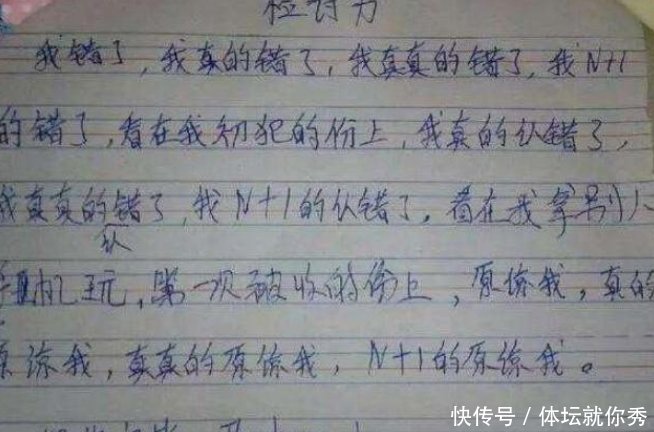 检讨书
我错了，我真的错了，我真真的错了，我N+1
的错了，看在我初犯的份上，我真的认错了，
我真真的认错了，我N+1的认错了。看在我拿别人
手机玩，第一次被收的份上，原谅我，真的
原谅我，真真的原谅我，N+1的原谅我。
快传号 / 体坛就你秀